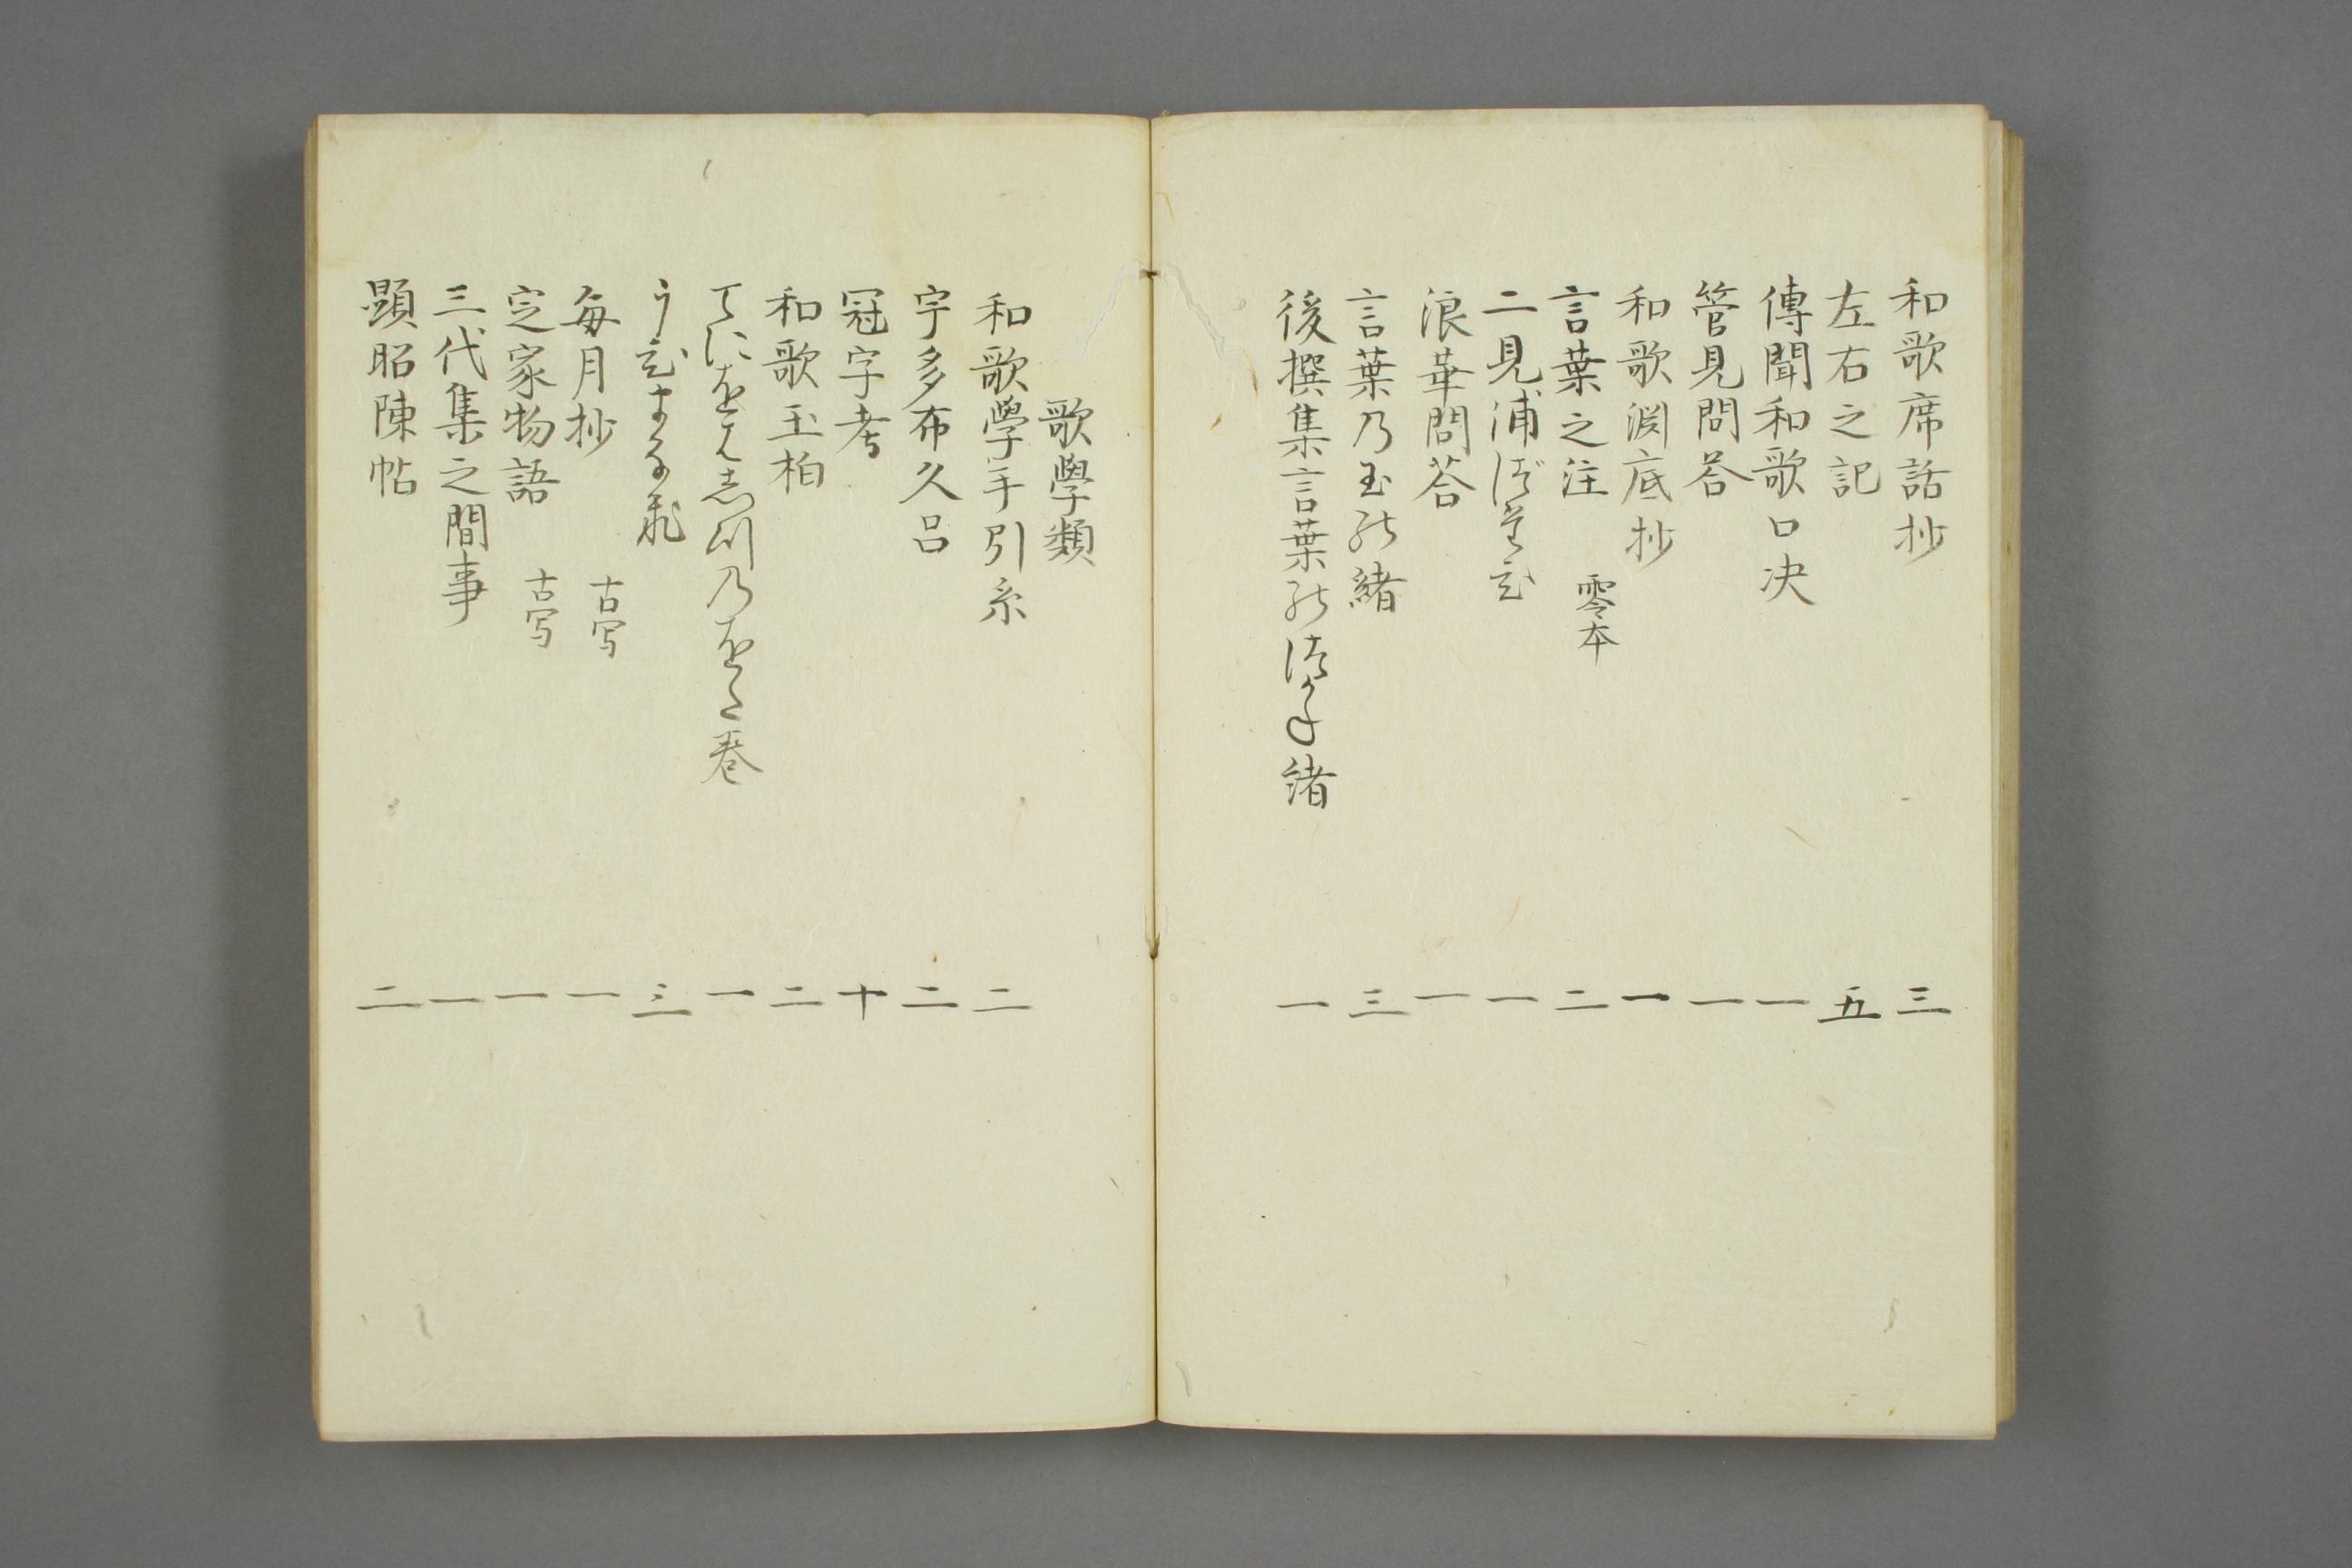 和歌席話抄 三
左右之記 五
傳聞和歌口决 一
管見問答 一
和歌渕底抄 一
言葉之注 零本 二
二見浦 一
浪華問答 一
言葉乃玉能緒 三
後撰集言葉能つかね緒 一
歌學類
和歌學手引糸 二
宇多布久呂 二
冠字考 十
和歌玉柏 二
てにをは志川乃をたま巻 一
うひまなひ 三
毎月抄 古写 一
定家物語 古写 一
三代集之間事 一
顕昭陳帖 二